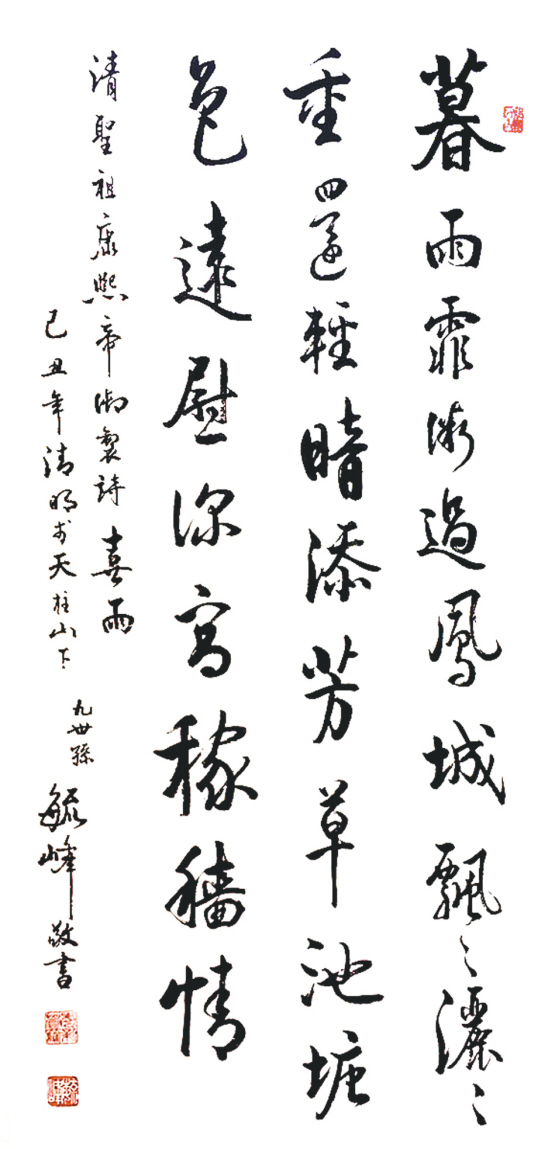 暮雨霏微過鳳城飄〻灑〻
重還輕暗添芳草池塘
色遠慰深宮稼穡情
清聖祖康熙帝御製詩 喜雨
己丑年清明於天柱山下
九世孫 毓峰敬書